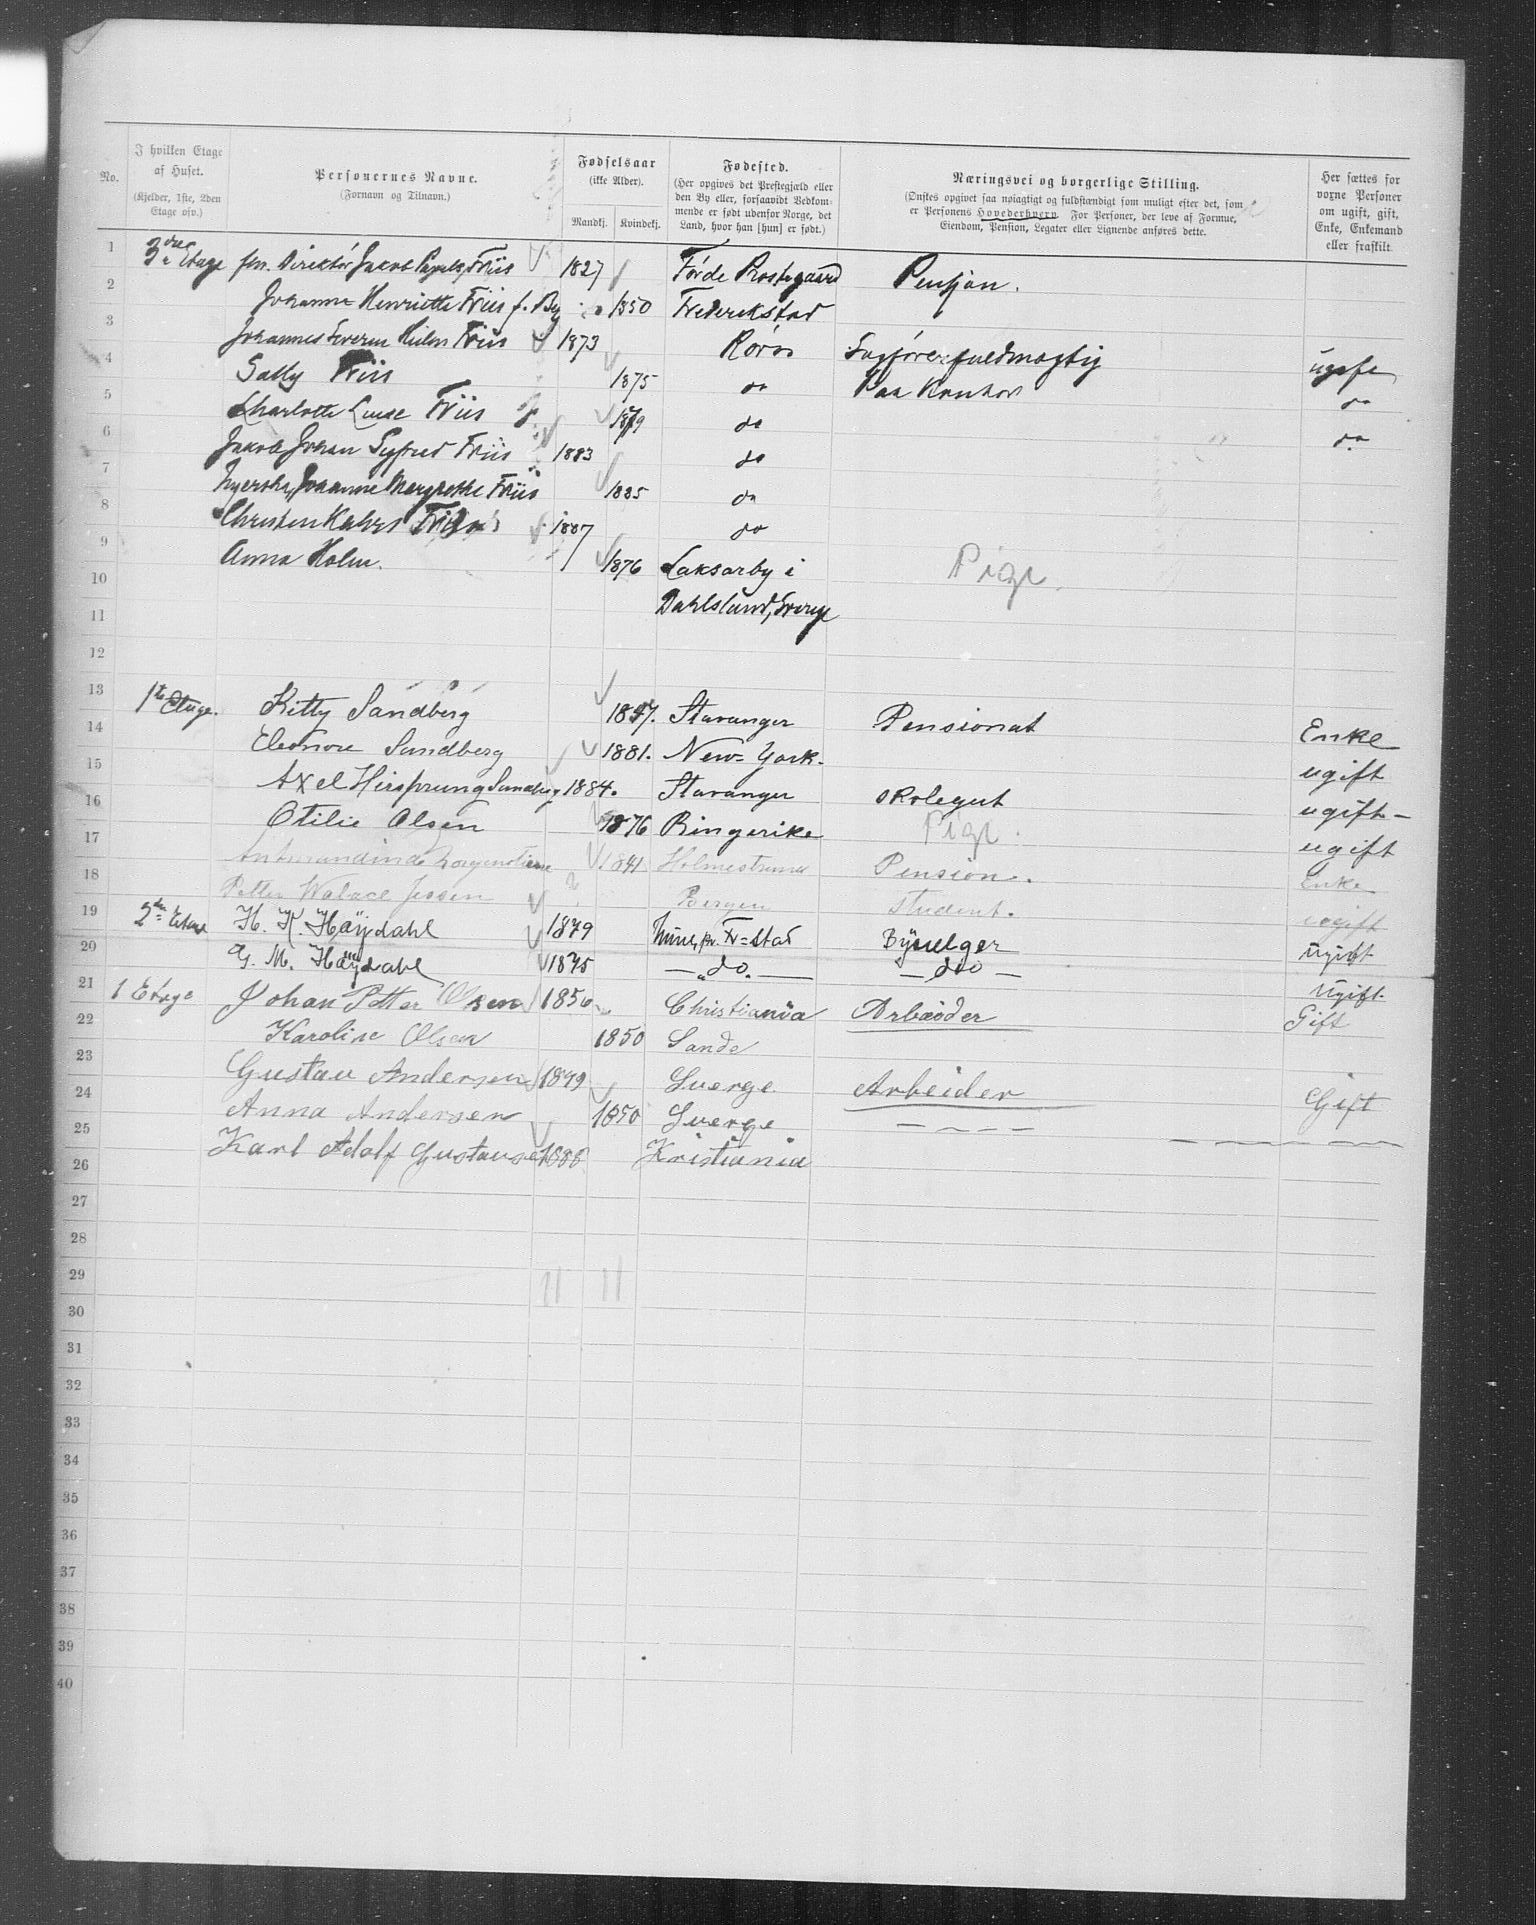 No.
I hvilken Etage af Huset.
(Kjelder, 1ste, 2den Etage osv.)
Personernes Navne.
(Fornavn og Tilnavn.)
Fødselsaar
(ikke Alder).
Mandkj. Kvindekj.
Fødested.
(Her opgives det Prestegjæld eller den By eller, forsaavidt Vedkommende er født udenfor Norge, det Land, hvor han [hun] er født.)
Næringsvei og borgerlige Stilling.
(Ønskes opgivet saa nøiagtigt og fuldstændigt som muligt efter det, som er Personens Hovederhverv. For Personer, der leve af Formue, Eiendom, Pension, Legater eller Lignende anføres dette.
Her sættes for voxne Personer om ugift, gift, Enke, Enkemand eller fraskilt.
1 3die Etage fhn. Direktör Jakob Friis 1827 Förde Prostegaard Pension.
2 Johanne Henriette Friis f. By 1850 Frederikstad
3 Johannes Severin Friis 1873 Röros Sagförerfuldmægtig ugift
4 Sally Friis 1875 do Paa Kontor do
5 Charlotte Luise Friis 1879 do do
6 Jakob Johan Sigfred Friis 1883 do
7 Ingeborg Johanne Margrethe Friis 1885 do
8 Christen Friis 1887 do
9 Anna Holm. 1876 Laksarby i Pige
10 Dahlsland, Sverige
11
12
13 1ste Etage. Kitty Sandberg 1847. Stavanger Pensionat Enke
14 Eleonore Sandberg 1881. New-York. ugift
15 Axel Hirsprung Sandberg 1884. Stavanger skolegut ugift-
16 Otilie Olsen 1876 Ringerike Pige. ugift
17 1841 Holmestrand Pension. Enke
18 Petter Walace Jessen Bergen Student. ugift
19 2den Etage H. K. Høydahl 1879 Fr=stad Byselger ugift
20 G. M. Høydahl 1875 — do. — — do — ugift.
21 1 Etage Johan Petter Olsen 1856 Christiania Arbæider Gift
22 Karoline Olsen 1850 Sande
23 Gustav Andersen 1849 Sverge Arbeider Gift
24 Anna Andersen 1850 Sverge — — — —
25 Karl Adolf Gustavsen 1888 Kristiania
26
27
28
29 11 11
30
31
32
33
34
35
36
37
38
39
40